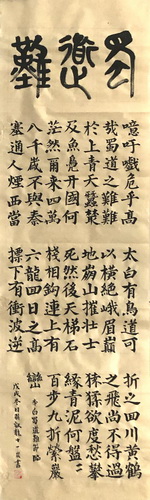 蜀道難
噫吁戲危乎高
哉蜀道之難難
於上青天蠶叢
及魚鳧開國何
茫然爾來四萬
八千歲不與秦
塞通人煙西當
太白有鳥道可
以橫絕峨眉巔
地崩山摧壯士
死然後天梯石
棧相鉤連上有
六龍回日之高
標下有衝波逆
折之回川黃鶴
之飛尚不得過
猿猱欲度愁攀
緣青泥何盤二
百步九折縈巖
巒
李白蜀道難節臨
戊戌冬月
書